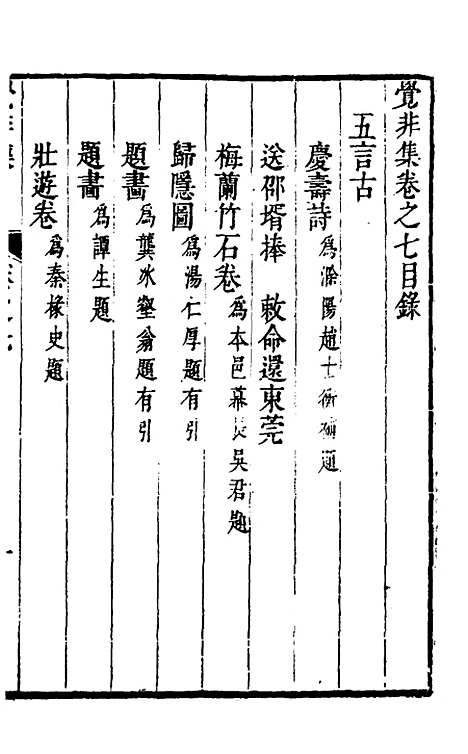 覺非集卷之七目錄
五言古
慶壽詩 爲滁陽趙士衡 題
送邵壻捧 敕命還東莞
梅蘭竹石卷 爲本邑幕長吳君題
歸隱圖 爲湯仁厚題有引
題畵 爲龔氷壑翁題有引
題畵 爲譚生題
壯遊卷 爲秦椽史題